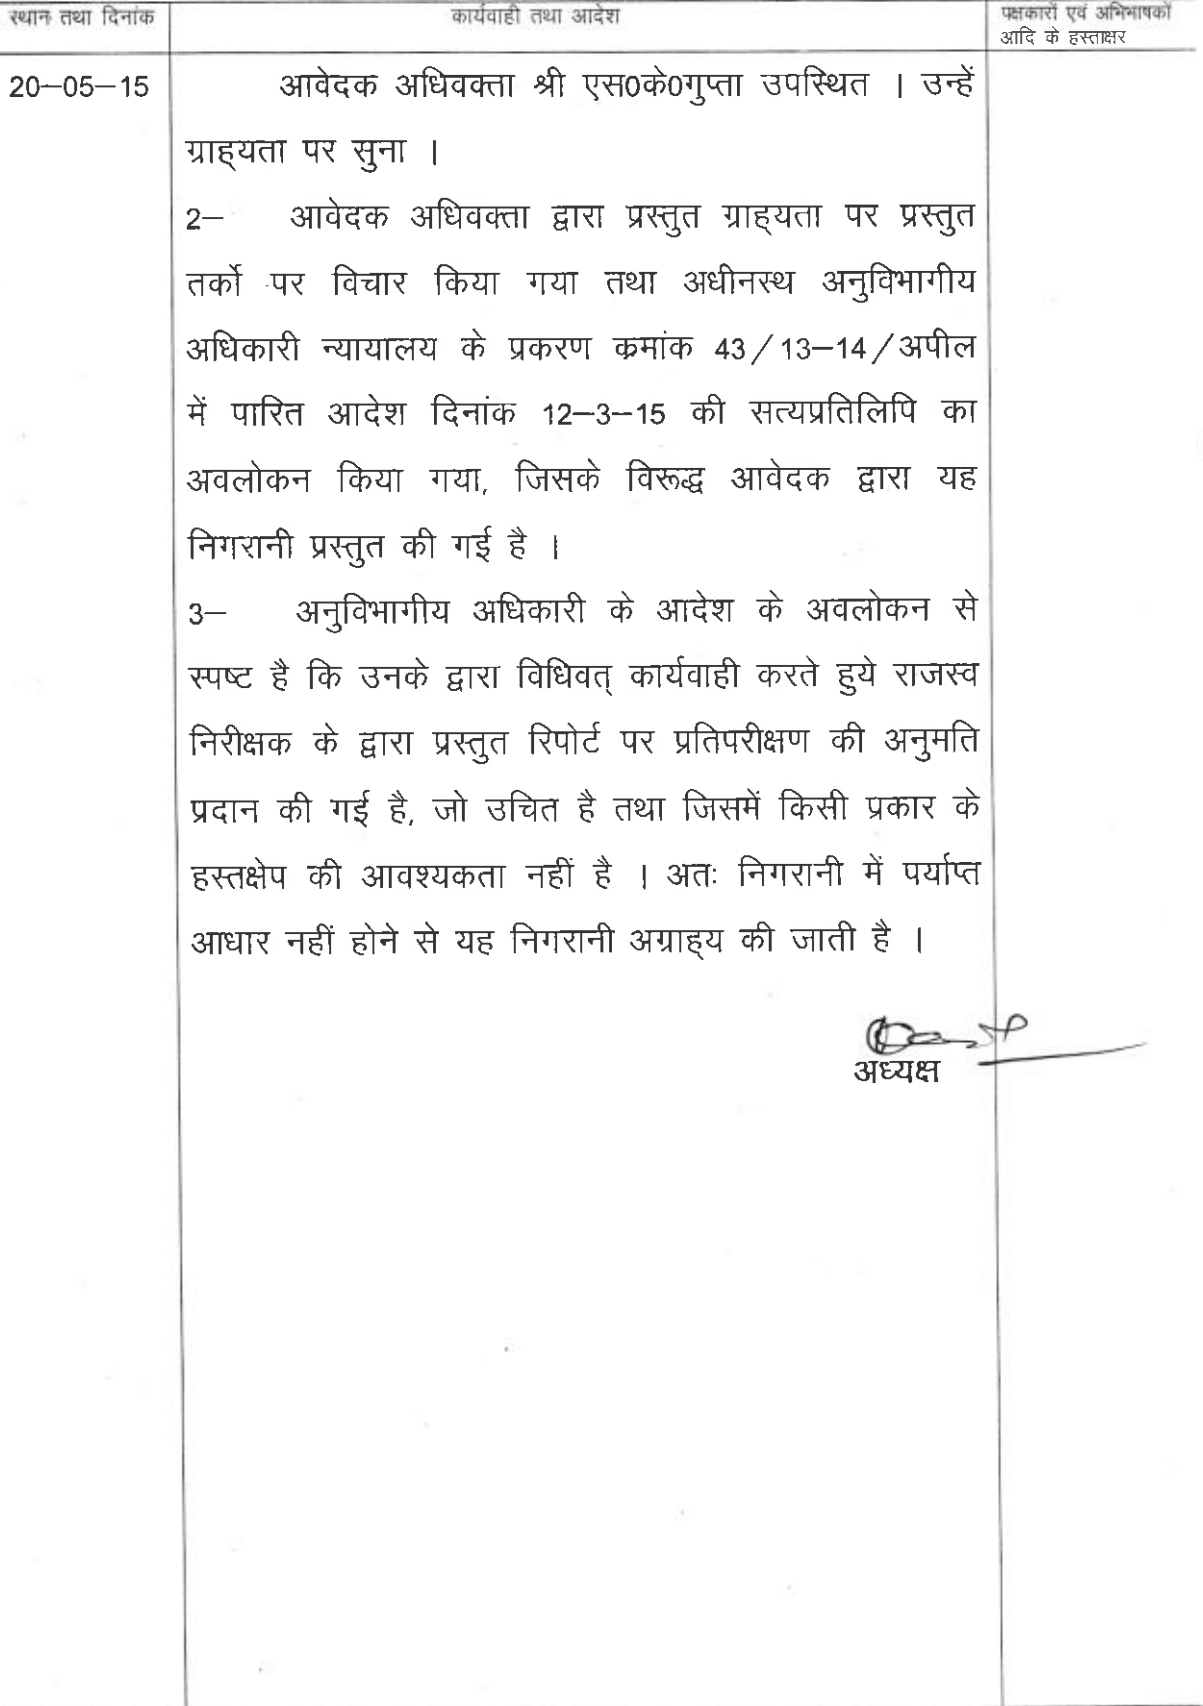 स्थान तथा दिनांक
कार्यवाही तथा आदेश
पक्षकारों एवं अभिभाषकों
आदि के हस्ताक्षर
20–05–15
आवेदक अधिवक्ता श्री एस0के0गुप्ता उपस्थित । उन्हें
ग्राह्यता पर सुना ।
2– आवेदक अधिवक्ता द्वारा प्रस्तुत ग्राह्यता पर प्रस्तुत
तर्को पर विचार किया गया तथा अधीनस्थ अनुविभागीय
अधिकारी न्यायालय के प्रकरण कमांक 43/13–14/अपील
में पारित आदेश दिनांक 12–3–15 की सत्यप्रतिलिपि का
अवलोकन किया गया, जिसके विरूद्ध आवेदक द्वारा यह
निगरानी प्रस्तुत की गई है ।
3– अनुविभागीय अधिकारी के आदेश के अवलोकन से
स्पष्ट है कि उनके द्वारा विधिवत् कार्यवाही करते हुये राजस्व
निरीक्षक के द्वारा प्रस्तुत रिपोर्ट पर प्रतिपरीक्षण की अनुमति
प्रदान की गई है, जो उचित है तथा जिसमें किसी प्रकार के
हस्तक्षेप की आवश्यकता नहीं है । अतः निगरानी में पर्याप्त
आधार नहीं होने से यह निगरानी अग्राह्य की जाती है ।
अध्यक्ष